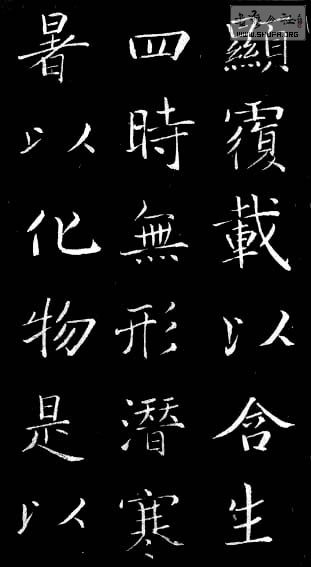 顯覆載以含生
四時無形潛寒
暑以化物是以
WWW.SHUFA.ORG